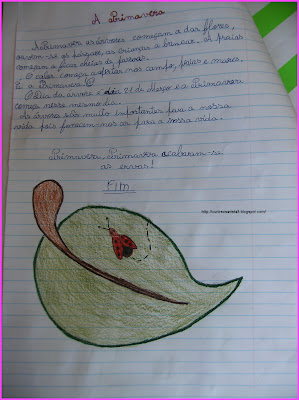 A Primavera
Na Primavera as árvores começam a dar flores,
ouvem-se os pássaros, as crianças a brincar, as praias
começam a ficar cheias de pessoas.
O calor começa a apertar nos campos, praias e mares.
É a Primavera!
O dia da árvore é dia 21 de Março e a Primavera
começa nesse mesmo dia.
As árvores são muito importantes para a nossa
vida pois fornecem-nos ar para a nossa vida.
Primavera, Primavera acabaram-se
as ervas!
FIM